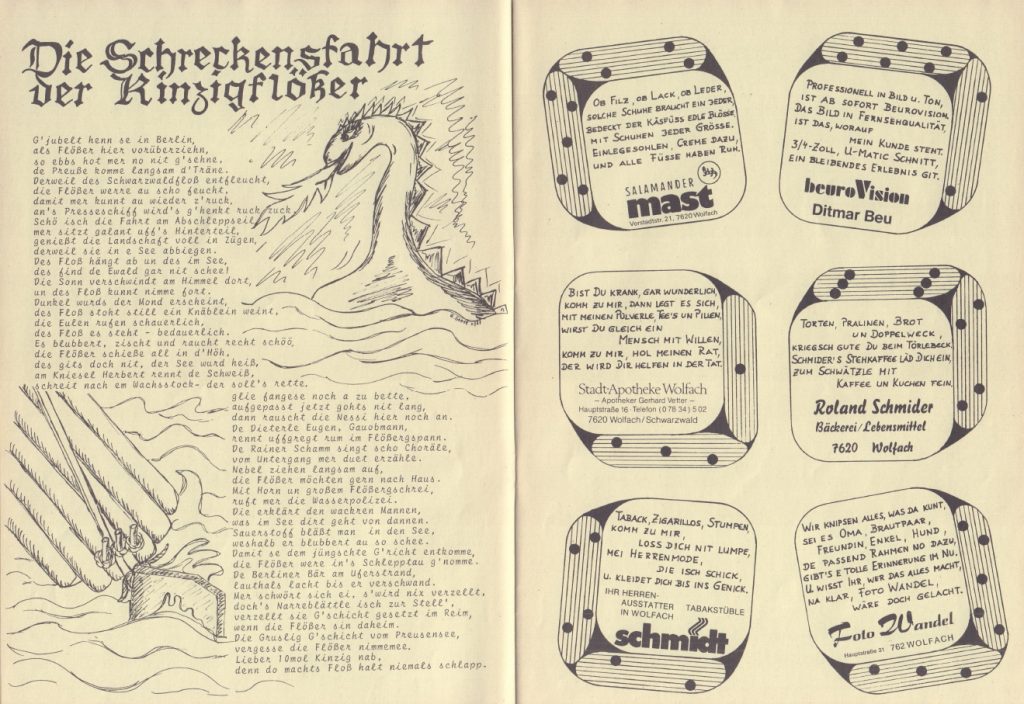 Die Schreckensfahrt
der Kinzigflößer
G'jubelt henn se in Berlin,
als Flößer hier vorüberziehn,
so ebbs hot mer no nit g'sehne,
de Preuße komme langsam d'Träne.
Derweil des Schwarzwaldfloß entfleucht,
die Flößer werre au scho feucht,
damit mer kunnt au wieder z'ruck,
an's Presseschiff wird's g'henkt ruck zuck
Schö isch die Fahrt an Abschleppseil,
mer sitzt galant uff's Hinterteil,
genießt die Landschaft voll in Zügen,
derweil sie in e See abbiegen.
Des Floß hängt ab un des im See,
des find de Ewald gar nit schee!
Die Sonn verschwindt am Himmel dort,
un des Floß kunnt nimme fort.
Dunkel wurds der Mond erscheint,
des Floß stoht still ein Knäblein weint,
die Eulen rufen schauerlich,
des Floß es steht - bedauerlich.
Es blubbert, zischt und raucht recht schöö,
die Flößer schieße all in d'Höh,
des gits doch nit, der See wurd heiß,
am Kniesel Herbert rennt de Schweiß,
schreit nach em Wachsstock- der soll's rette,
glie fangese noch a zu bette,
aufgepasst jetzt gohts nit lang,
dann rauscht die Nessi hier noch an.
De Dieterle Eugen, Gauobmann,
rennt uffgregt rum im Flößergspann.
De Rainer Schamm singt scho Choräle,
vom Untergang mer duet erzähle.
Nebel ziehen langsam auf,
die Flößer möchten gern nach Haus.
Mit Horn un großem Flößergschrei,
ruft mer die Wasserpolizei.
Die erklärt den wackren Mannen,
was im See dirt geht von dannen.
Sauerstoff bläßt man in den See,
weshalb er blubbert au so schee.
Damit se dem jüngschte G'richt entkomme,
die Flößer were in's Schlepptau g'nomme.
De Berliner Bär am Uferstrand,
lauthals lacht bis er verschwand.
Mer schwört sich ei, s'wird nix verzellt,
doch's Narreblättle isch zur Stell',
verzellt sie G'schicht gesetzt im Reim,
wenn die Flößer sin daheim.
Die Gruslig G'schicht vom Preusensee,
vergesse die Flößer nimmemee.
Lieber 10mol Kinzig nab,
denn do machts Floß halt niemals schlapp.
Ob Filz, ob Lack, ob Leder,
solche Schuhe braucht ein jeder,
bedeckt der Käsfüss edle Blösse
mit Schuhen jeder Grösse.
Einlegesohlen, Creme dazu,
und alle Füsse haben Ruh.
SALAMANDER
mast
Vorstadtstr. 21, 7620 Wolfach
Professionell in Bild u. Ton,
ist ab sofort Beurovision.
Das Bild in Fernsehqualität,
ist das, worauf
mein Kunde steht.
3/4-Zoll, U-Matic Schnitt,
ein bleibendes Erlebnis git.
beuroVision
Ditmar Beu
Bist Du krank, gar wunderlich,
komm zu mir, dann legt es sich,
mit meinen Pülverle, Tee's un Pillen,
wirst Du gleich ein
Mensch mit Willen,
komm zu mir, hol meinen Rat,
der wird Dir helfen in der Tat.
Stadt-Apotheke Wolfach
– Apotheker Gerhard Vetter –
Hauptstraße 16 · Telefon (0 78 34) 5 02
7620 Wolfach/Schwarzwald
Torten, Pralinen, Brot
un Doppelweck,
kriegsch gute Du beim Törlebeck.
Schmider's Stehkaffee läd Dich ein,
zum Schwätzle mit
Kaffee un Kuchen fein.
Roland Schmider
Bäckerei/Lebensmittel
7620 Wolfach
Taback, Zigarillos, Stumpen,
komm zu mir,
loss dich nit lumpe,
mei Herrenmode,
die isch schick,
u. kleidet dich bis ins Genick.
IHR HERREN-
AUSSTATTER
IN WOLFACH
TABAKSTÜBLE
schmidt
Wir knipsen alles, was da kunt,
sei es Oma, Brautpaar,
Freundin, Enkel, Hund,
de passend Rahmen no dazu,
gibt's e tolle Erinnerung im Nu.
U wisst Ihr, wer das alles macht,
na klar, Foto Wandel,
wäre doch gelacht.
Foto Wandel
Hauptstraße 31 762 WOLFACH